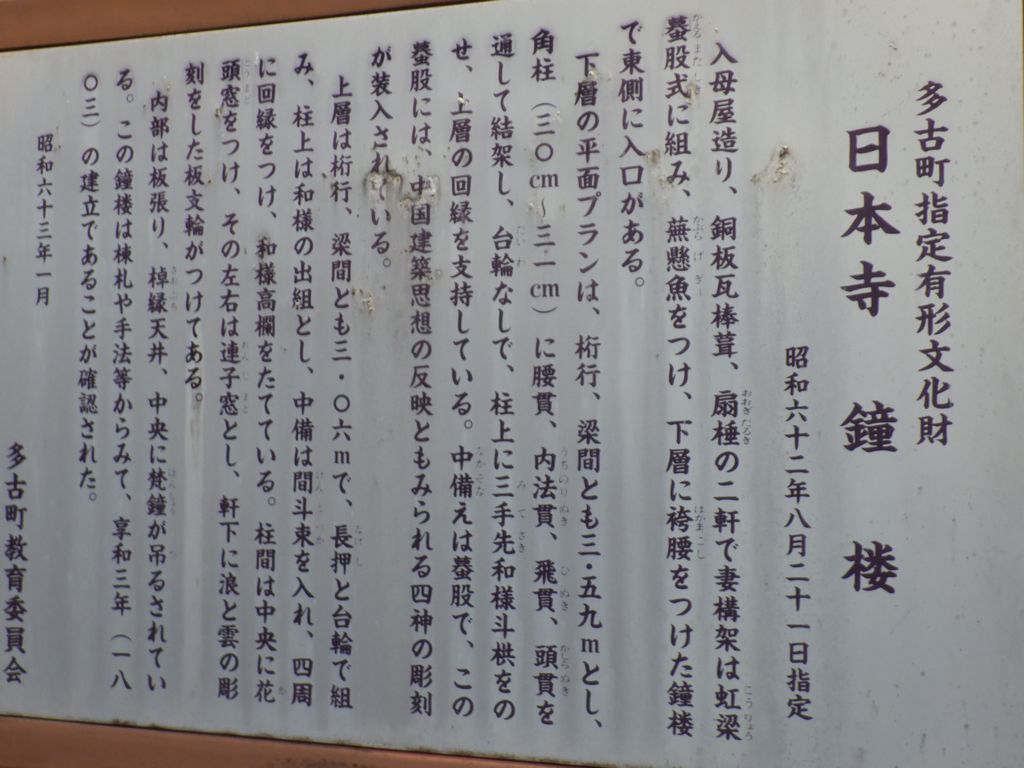 多古町指定有形文化財
日本寺 鐘楼
昭和六十二年八月二十一日指定
入母屋造り、銅板瓦棒葺、扇棰の二軒で妻構架は虹梁
蟇股式に組み、蕪懸魚をつけ、下層に袴腰をつけた鐘楼
で東側に入口がある。
下層の平面プランは、桁行、梁間とも三・五九mとし、
角柱（三〇cm〜三・一cm）に腰貫、内法貫、飛貫、頭貫を
通して結架し、台輪なしで、柱上に三手先和様斗栱をの
せ、上層の回縁を支持している。中備えは蟇股で、この
蟇股には、中国建築思想の反映ともみられる四神の彫刻
が装入されている。
上層は桁行、梁間とも三・〇六mで、長押と台輪で組
み、柱上は和様の出組とし、中備は間斗束を入れ、四周
に回縁をつけ、和様高欄をたてている。柱間は中央に花
頭窓をつけ、その左右は連子窓とし、軒下に浪と雲の彫
刻をした板支輪がつけてある。
内部は板張り、棹縁天井、中央に梵鐘が吊るされてい
る。この鐘楼は棟札や手法等からみて、享和三年（一八
〇三）の建立であることが確認された。
昭和六十三年一月
多古町教育委員会